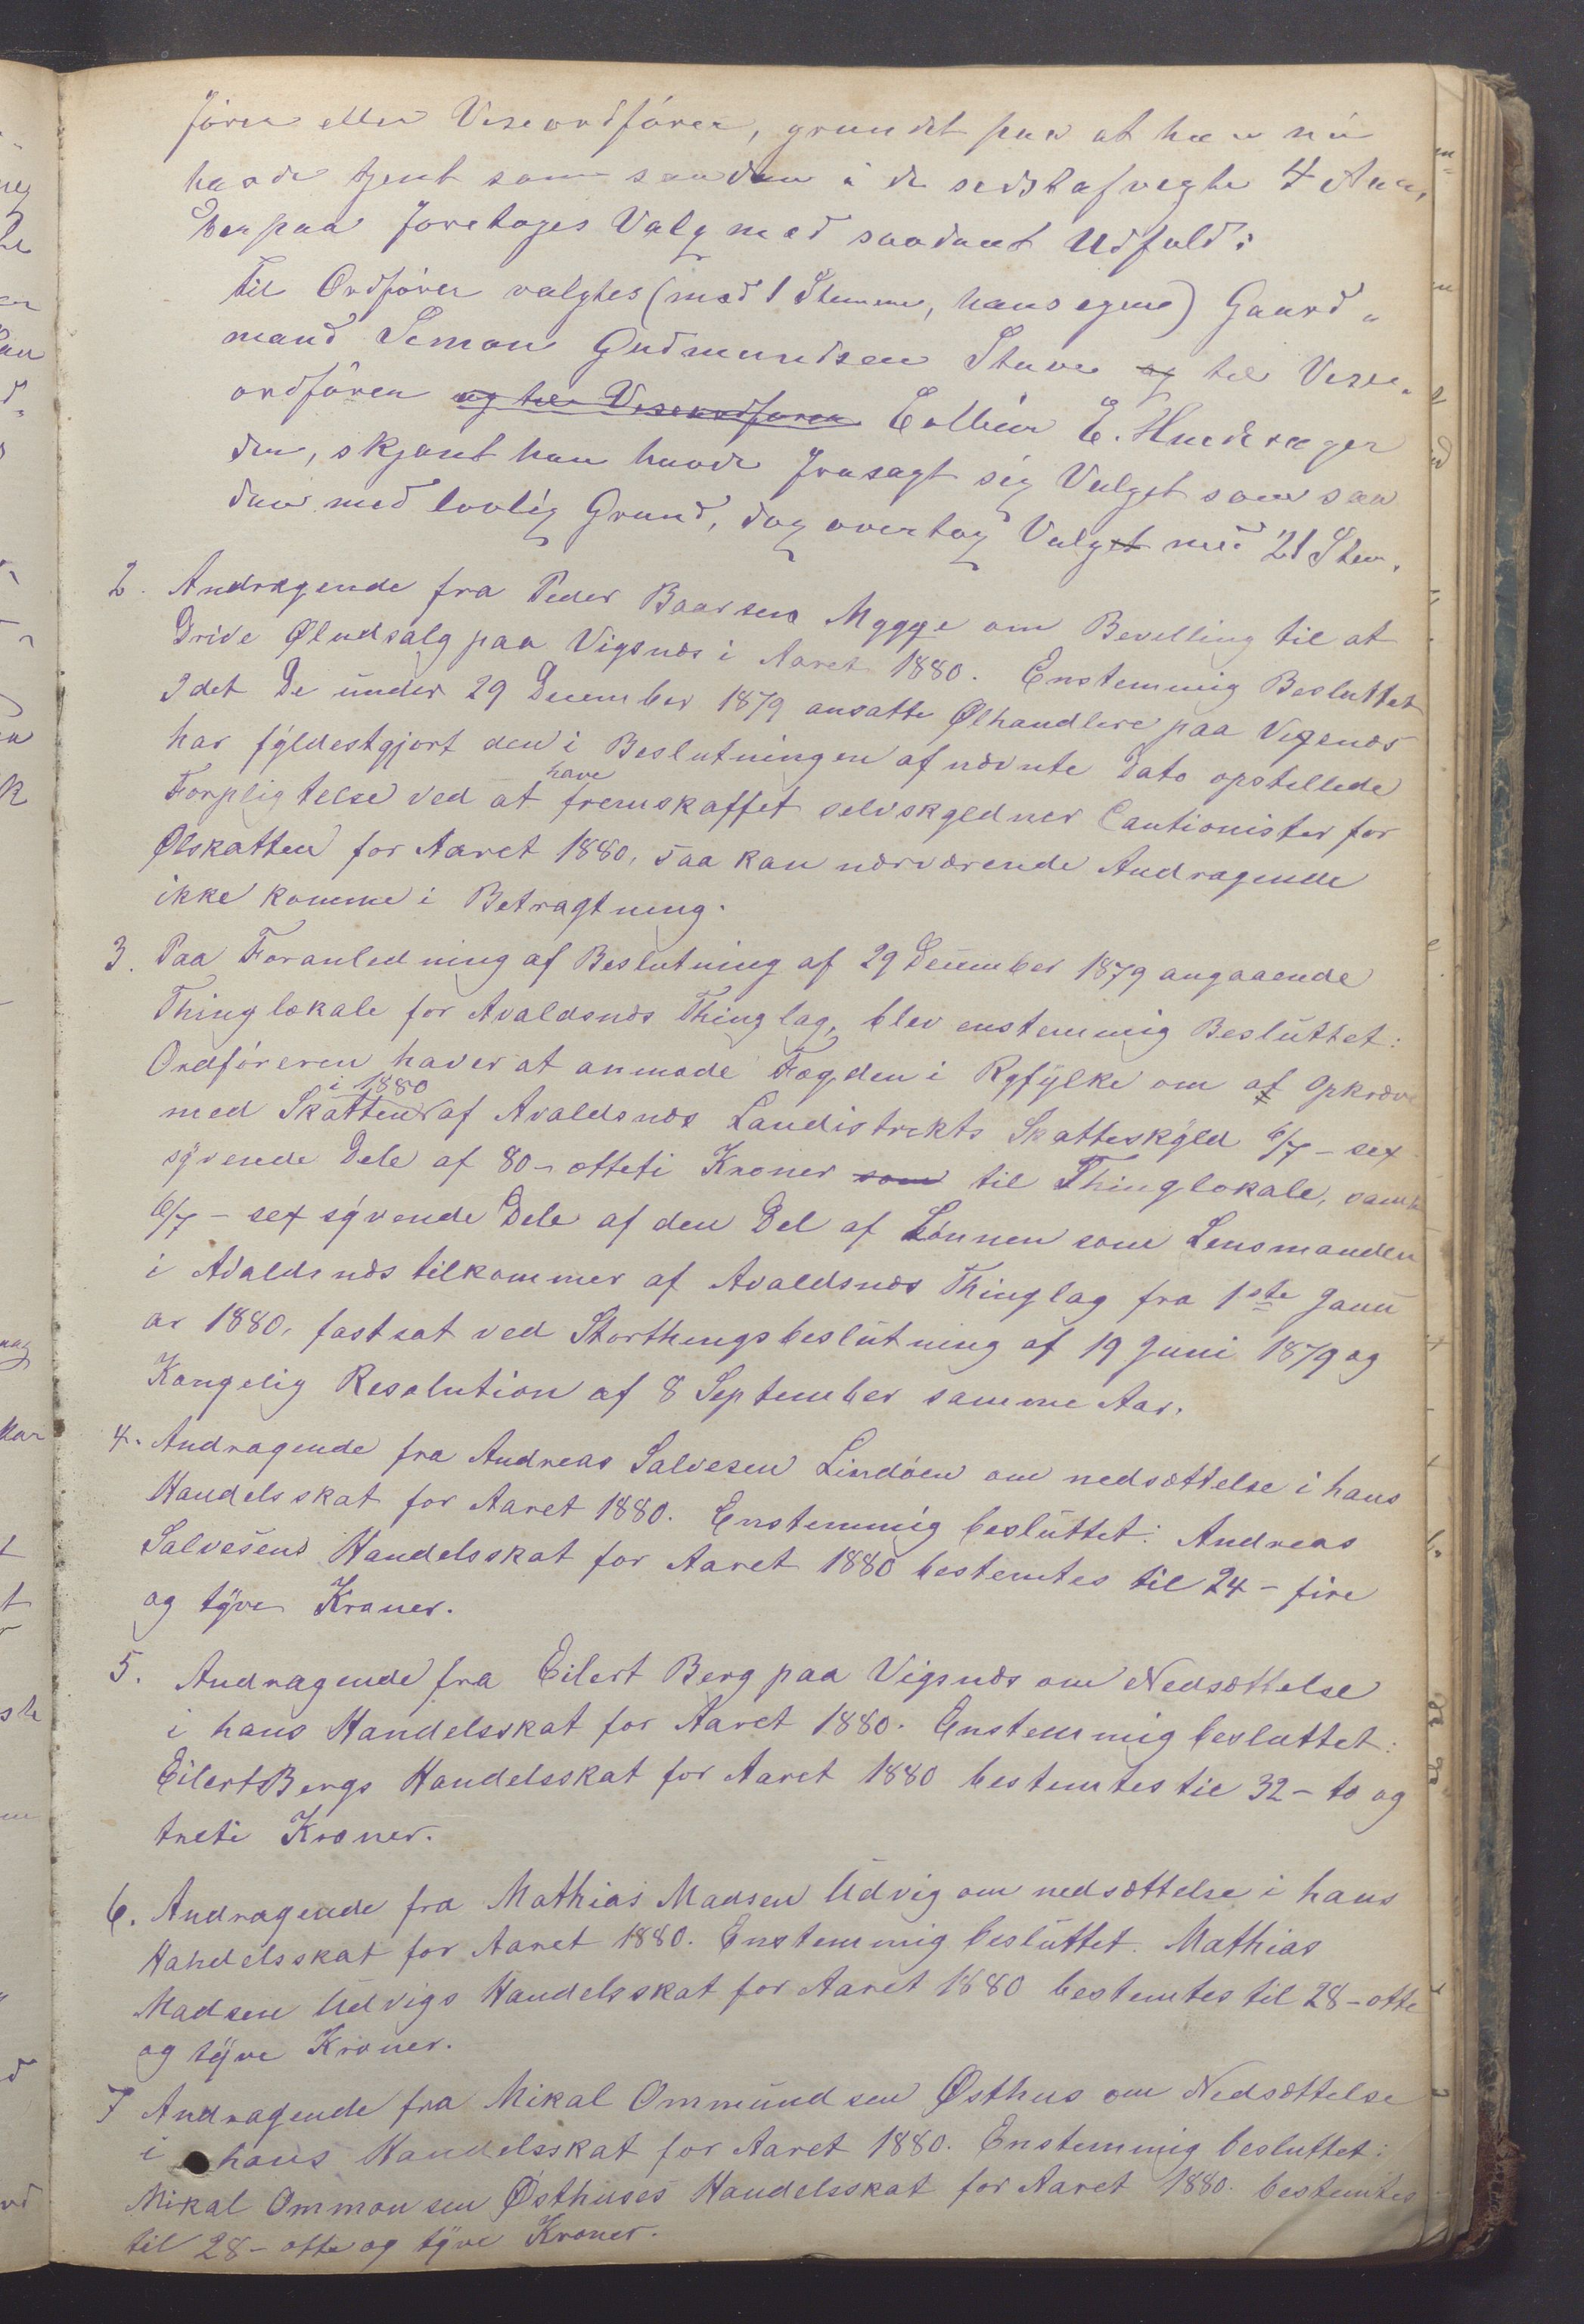 fører eller Viseordfører, grundet paa at han nu
havde tjent som saadan i de sidstafvegte 4 Aar,
Derpaa foretoges Valg med saadant Udfald:
Til Ordfører valgtes (med 1 Stemme, hans egene) Gaard„
mand Simon Gudmundsen Stave og til Vise„
ordfören og til Viseordfører Colbein E. Hinderager
den, skjønt han havde frasagt sig Valget som saa
dan med lovlig Grund, dog overtog Valget med 21 Stem.
2. Andragende fra Peder Baarsen Mygge om Bevilling til at
Drive Øludsalg paa Vigsnæs i Aaret 1880. Enstemmig Besluttet
Idet De under 29 December 1879 ansatte Ølhandlere paa Vigsnæs
har fyldestgjort den i Beslutningen af nævnte Dato opstillede
Forpligtelse ved at have fremskaffet selvskyldner Cautionister for
Ølskatten for Aaret 1880, saa kan nærværende Andragende
ikke komme i Betragtning.
3. Paa Foranledning af Beslutning af 29 December 1879 angaaende
Thinglokale for Avaldsnæs Thinglag, blev enstemmig Besluttet:
Ordføreren haver at anmode Fogden i Ryfylke om at Opkræve
med Skatten i 1880 af Avaldsnæs Landistrikts Skatteskyld 6/7 - sex
syvende Dele af 80 - otteti Kroner som til Thinglokale, samt
6/7 - sex syvende Dele af den Del af Lønnen som Lensmanden
i Avaldsnæs tilkommer af Avaldsnæs Thinglag fra 1ste Janu
ar 1880, fastsat ved Storthingsbeslutning af 19 Juni 1879 og
Kongelig Resolution af 8 September samme Aar.
4. Andragende fra Andreas Salvesen Lindøen om nedsættelse i hans
Handelsskat for Aaret 1880. Enstemmig besluttet: Andreas
Salvesens Handelsskat for Aaret 1880 bestemtes til 24 - fire
og tyve Kroner.
5. Andragende fra Eilert Berg paa Vigsnæs om Nedsættelse
i hans Handelsskat for Aaret 1880. Enstemmig besluttet:
Eilert Bergs Handelsskat for Aaret 1880 bestemtes til 32 - to og
treti Kroner.
6. Andragende fra Mathias Madsen Udvig om nedsættelse i hans
Handelsskat for Aaret 1880. Enstemmig besluttet. Mathias
Madsen Udvigs Handelsskat for Aaret 1880 bestemtes til 28 - otte
og tyve Kroner.
7 Andragende fra Mikal Ommundsen Østhus om Nedsættelse
i hans Handelsskat for Aaret 1880. Enstemmig besluttet:
Mikal Ommonsen Østhuses Handelsskat for Aaret 1880. bestemtes
til 28 - otte og tyve Kroner.